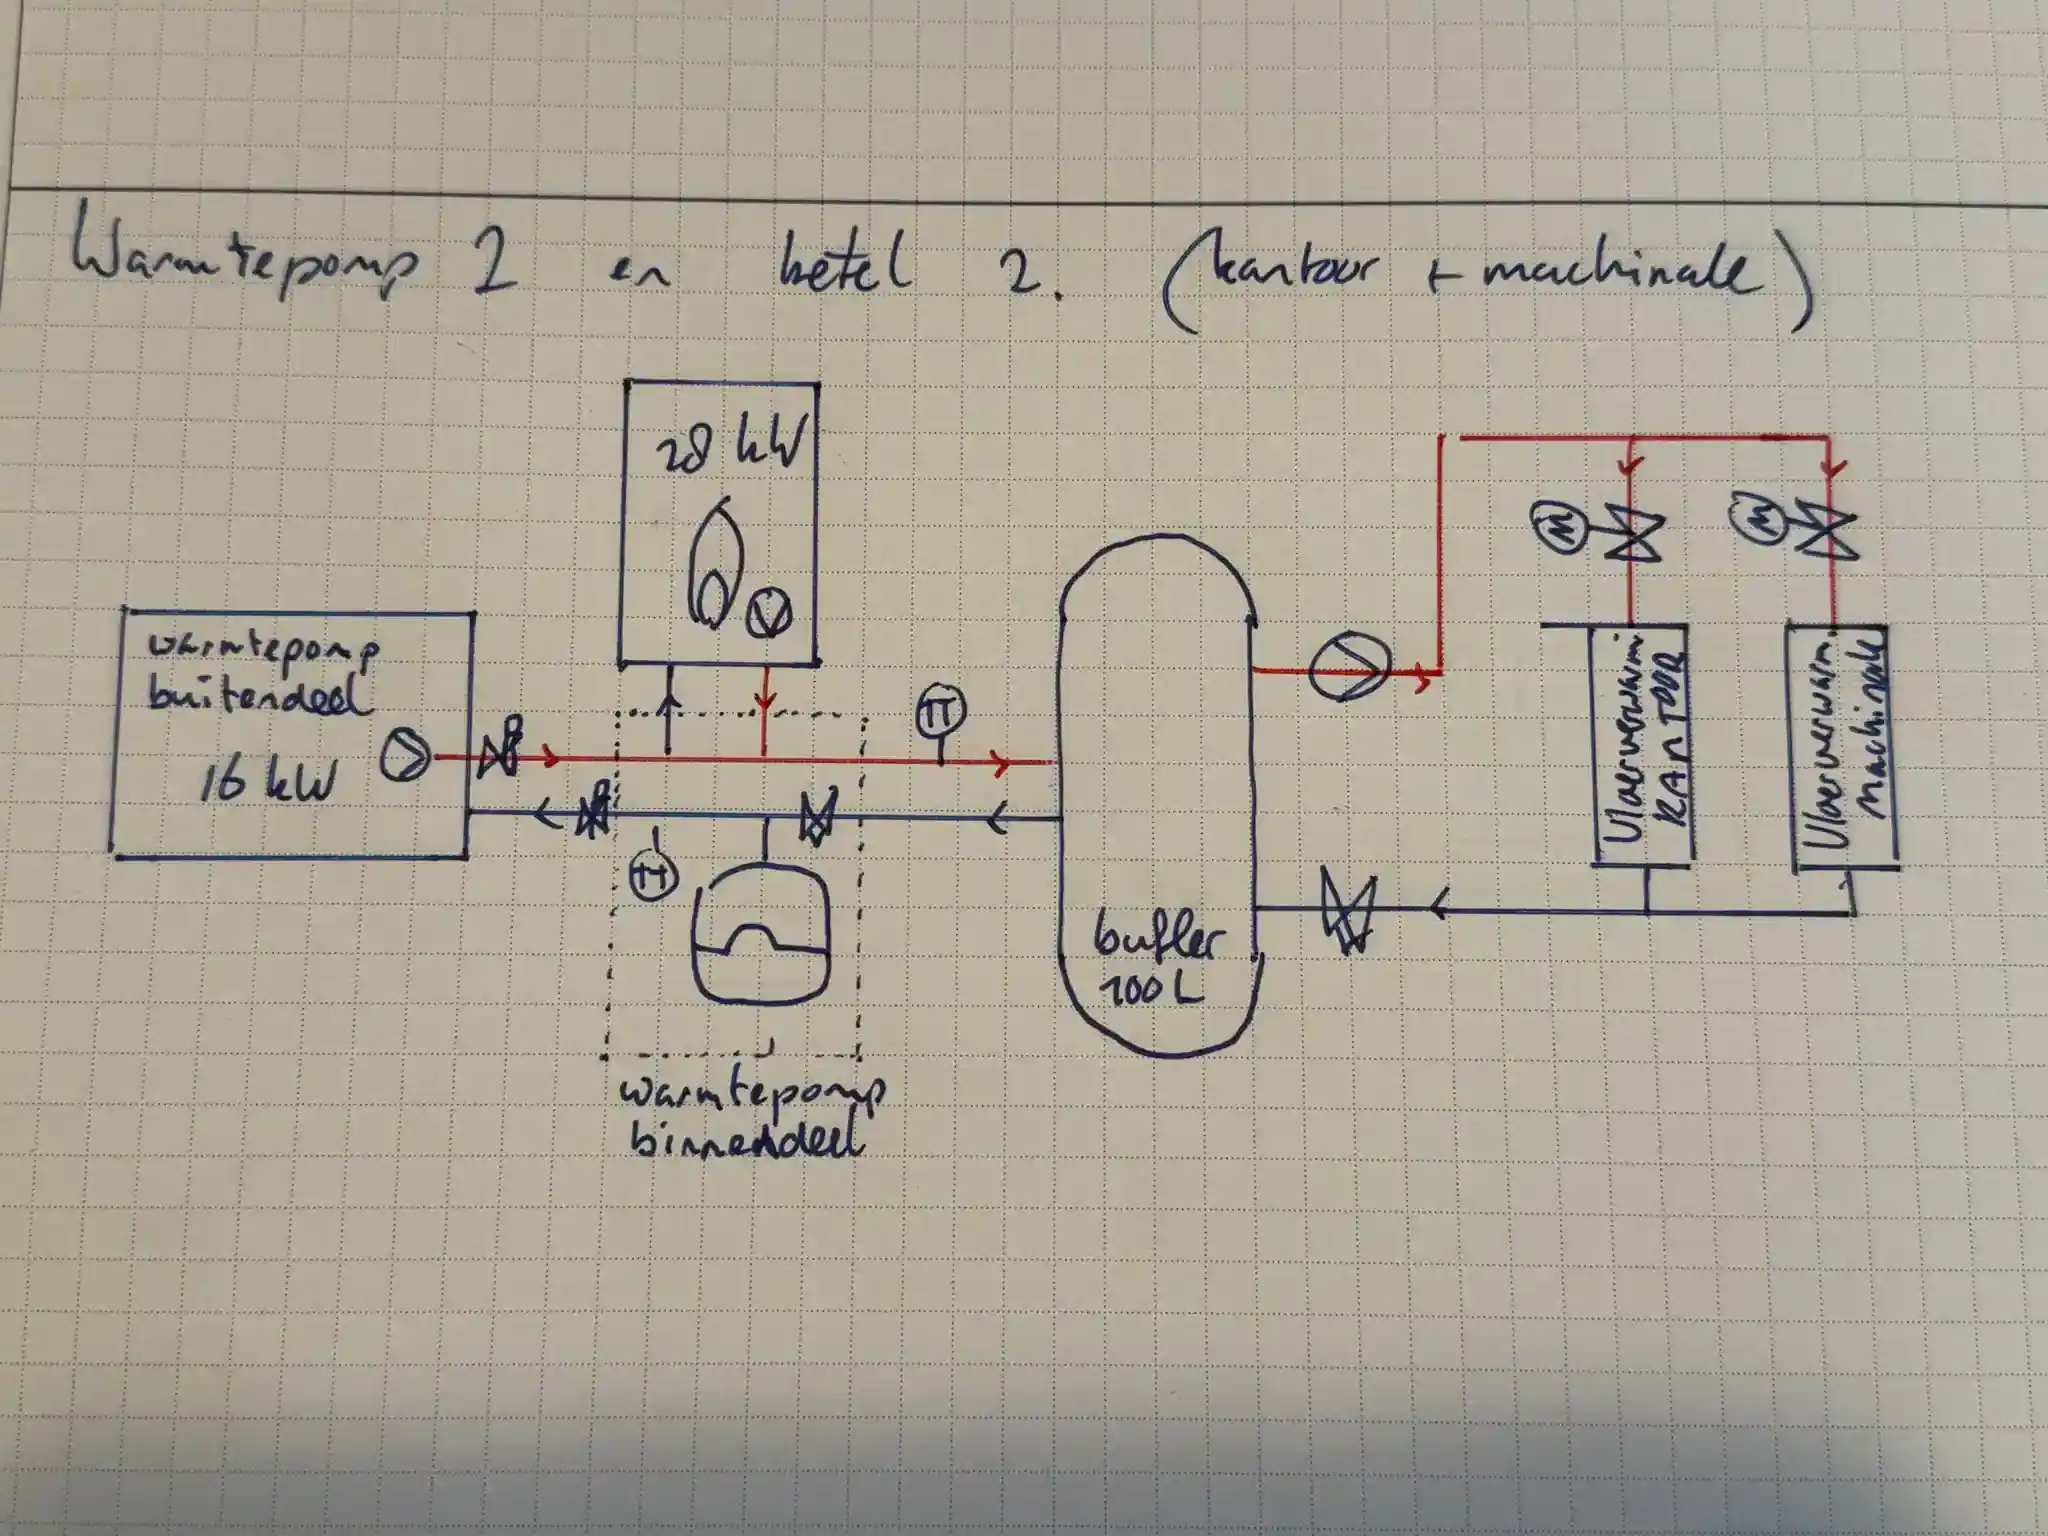 Warmtepomp 2 en ketel 2. (kantoor + machinale)
28 kW
warmtepomp
buitendeel
16 kW
TT
TT
M
M
Vloerverwarm.
KANTOOR
Vloerverwarm.
machinale
buffer
100 L
warmtepomp
binnendeel